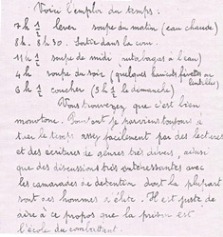 Voici l'emploi du temps :
7 h 1/2 lever soupe du matin (eau chaude)
8 h. 8 h 30. Sortie dans la cour.
11 h 1/2 soupe de midi rutabagas à l'eau)
4 h soupe du soir (quelques haricots fèves ou lentilles)
6 h 1/2 coucher (5 h 1/2 le dimanche)
Vous voyez que c'est bien
monotone. Pourtant je parviens toujours à
tuer le temps assez facilement par des lectures
et des écritures de genres très divers, ainsi
que des discussions très intéressantes avec
les camarades de détention dont la plupart
sont des hommes d'élite. Il est juste de
dire à ce propos que la prison est
l'école du combattant.